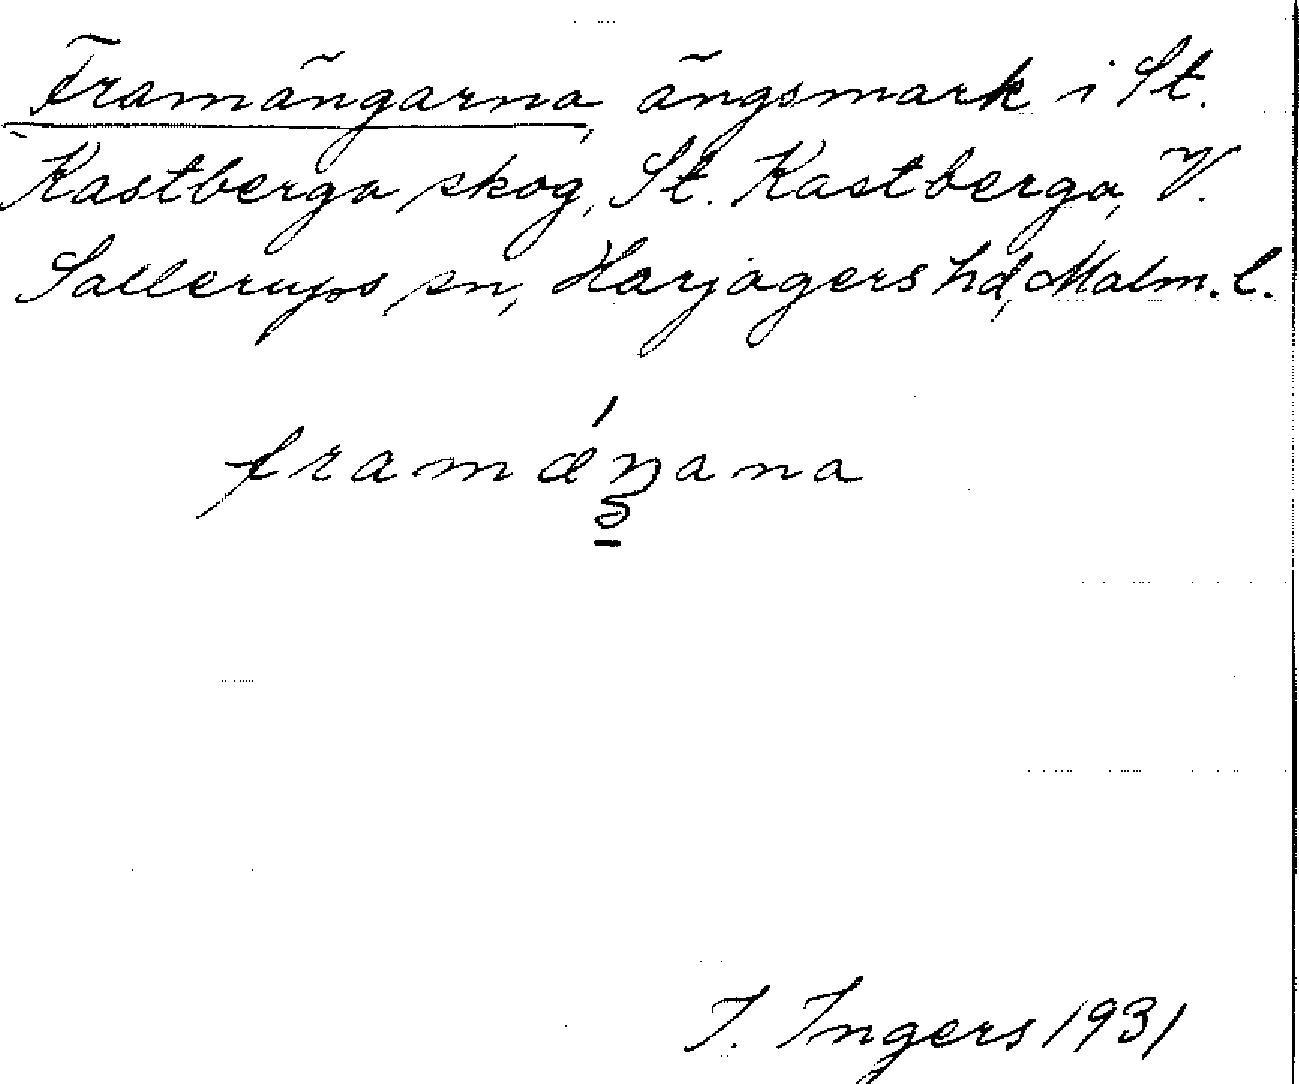 Framängarna, ängsmark i St.
Kastberga skog, St. Kastberga, V.
Sallerups sn, Harjagers hd, Malm. l.
framǽŋana
I. Ingers 1931